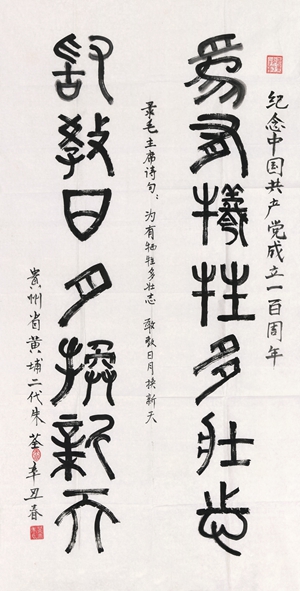 纪念中国共产党成立一百周年
为有牺牲多壮志
录毛主席诗句：为有牺牲多壮志 敢教日月换新天
敢教日月换新天
贵州省黄埔二代朱荃 辛丑春